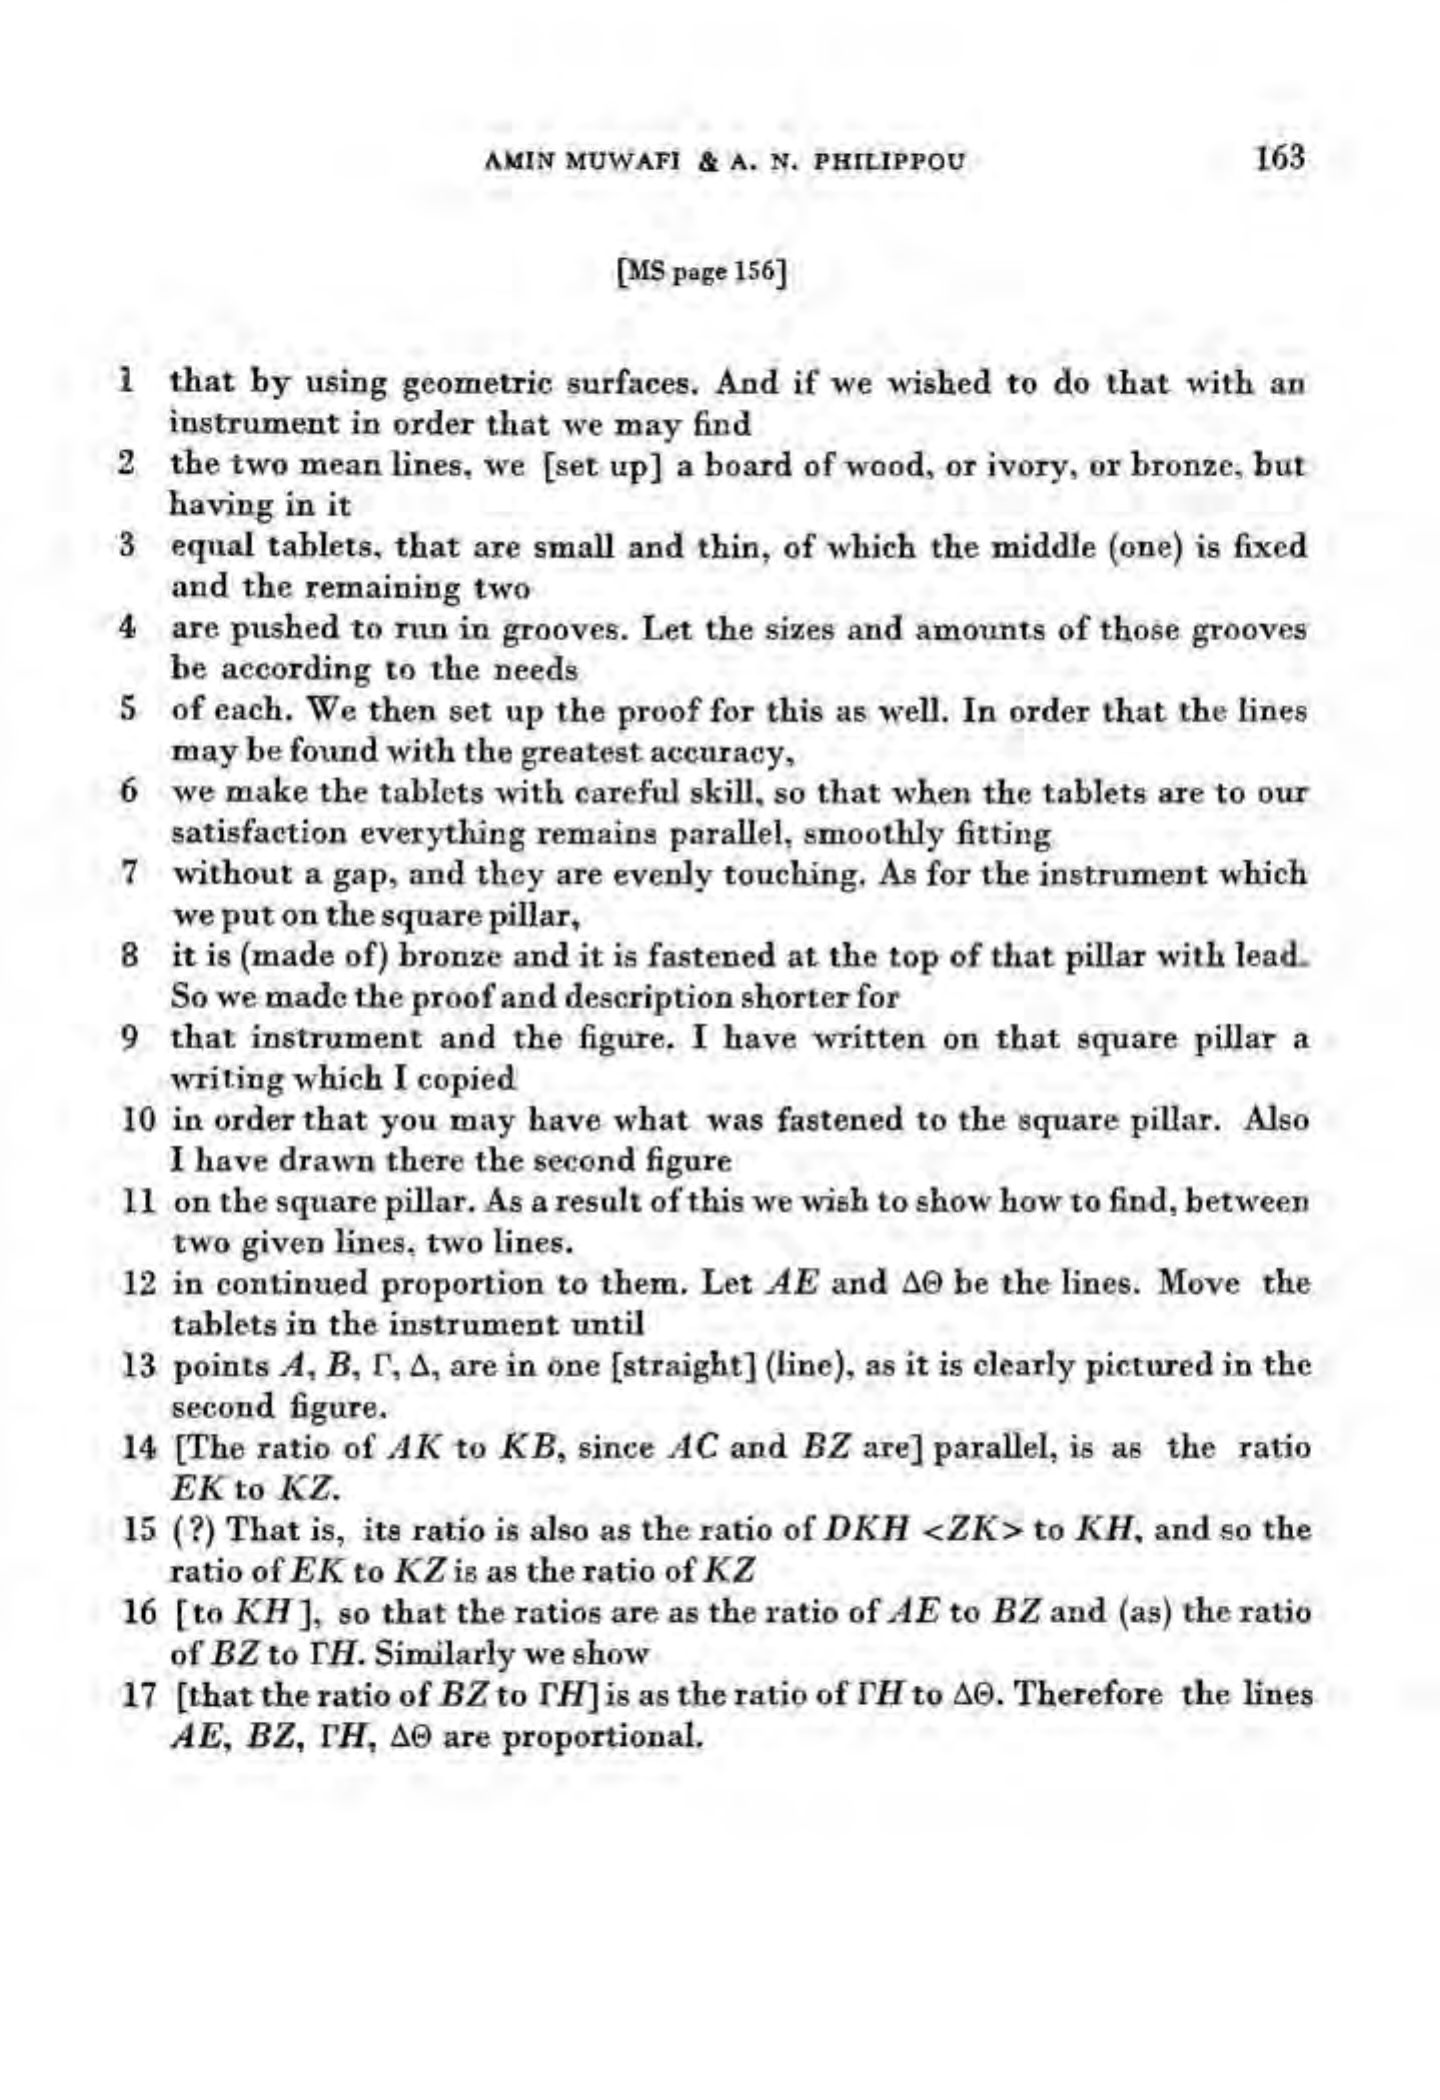 AMIN MUWAFI & A. N. PHILIPPOU 163
[MS page 156]
1 that by using geometric surfaces. And if we wished to do that with an
instrument in order that we may find
2 the two mean lines, we [set up] a board of wood, or ivory, or bronze, but
having in it
3 equal tablets, that are small and thin, of which the middle (one) is fixed
and the remaining two
4 are pushed to run in grooves. Let the sizes and amounts of those grooves
be according to the needs
5 of each. We then set up the proof for this as well. In order that the lines
may be found with the greatest accuracy,
6 we make the tablets with careful skill, so that when the tablets are to our
satisfaction everything remains parallel, smoothly fitting
7 without a gap, and they are evenly touching. As for the instrument which
we put on the square pillar,
8 it is (made of) bronze and it is fastened at the top of that pillar with lead.
So we made the proof and description shorter for
9 that instrument and the figure. I have written on that square pillar a
writing which I copied
10 in order that you may have what was fastened to the square pillar. Also
I have drawn there the second figure
11 on the square pillar. As a result of this we wish to show how to find, between
two given lines, two lines.
12 in continued proportion to them. Let AE and ΔΘ be the lines. Move the
tablets in the instrument until
13 points A, B, Γ, Δ, are in one [straight] (line), as it is clearly pictured in the
second figure.
14 [The ratio of AK to KB, since AC and BZ are] parallel, is as the ratio
EK to KZ.
15 (?) That is, its ratio is also as the ratio of DKH <ZK> to KH, and so the
ratio of EK to KZ is as the ratio of KZ
16 [to KH], so that the ratios are as the ratio of AE to BZ and (as) the ratio
of BZ to ΓH. Similarly we show
17 [that the ratio of BZ to ΓH] is as the ratio of ΓH to ΔΘ. Therefore the lines
AE, BZ, ΓH, ΔΘ are proportional.